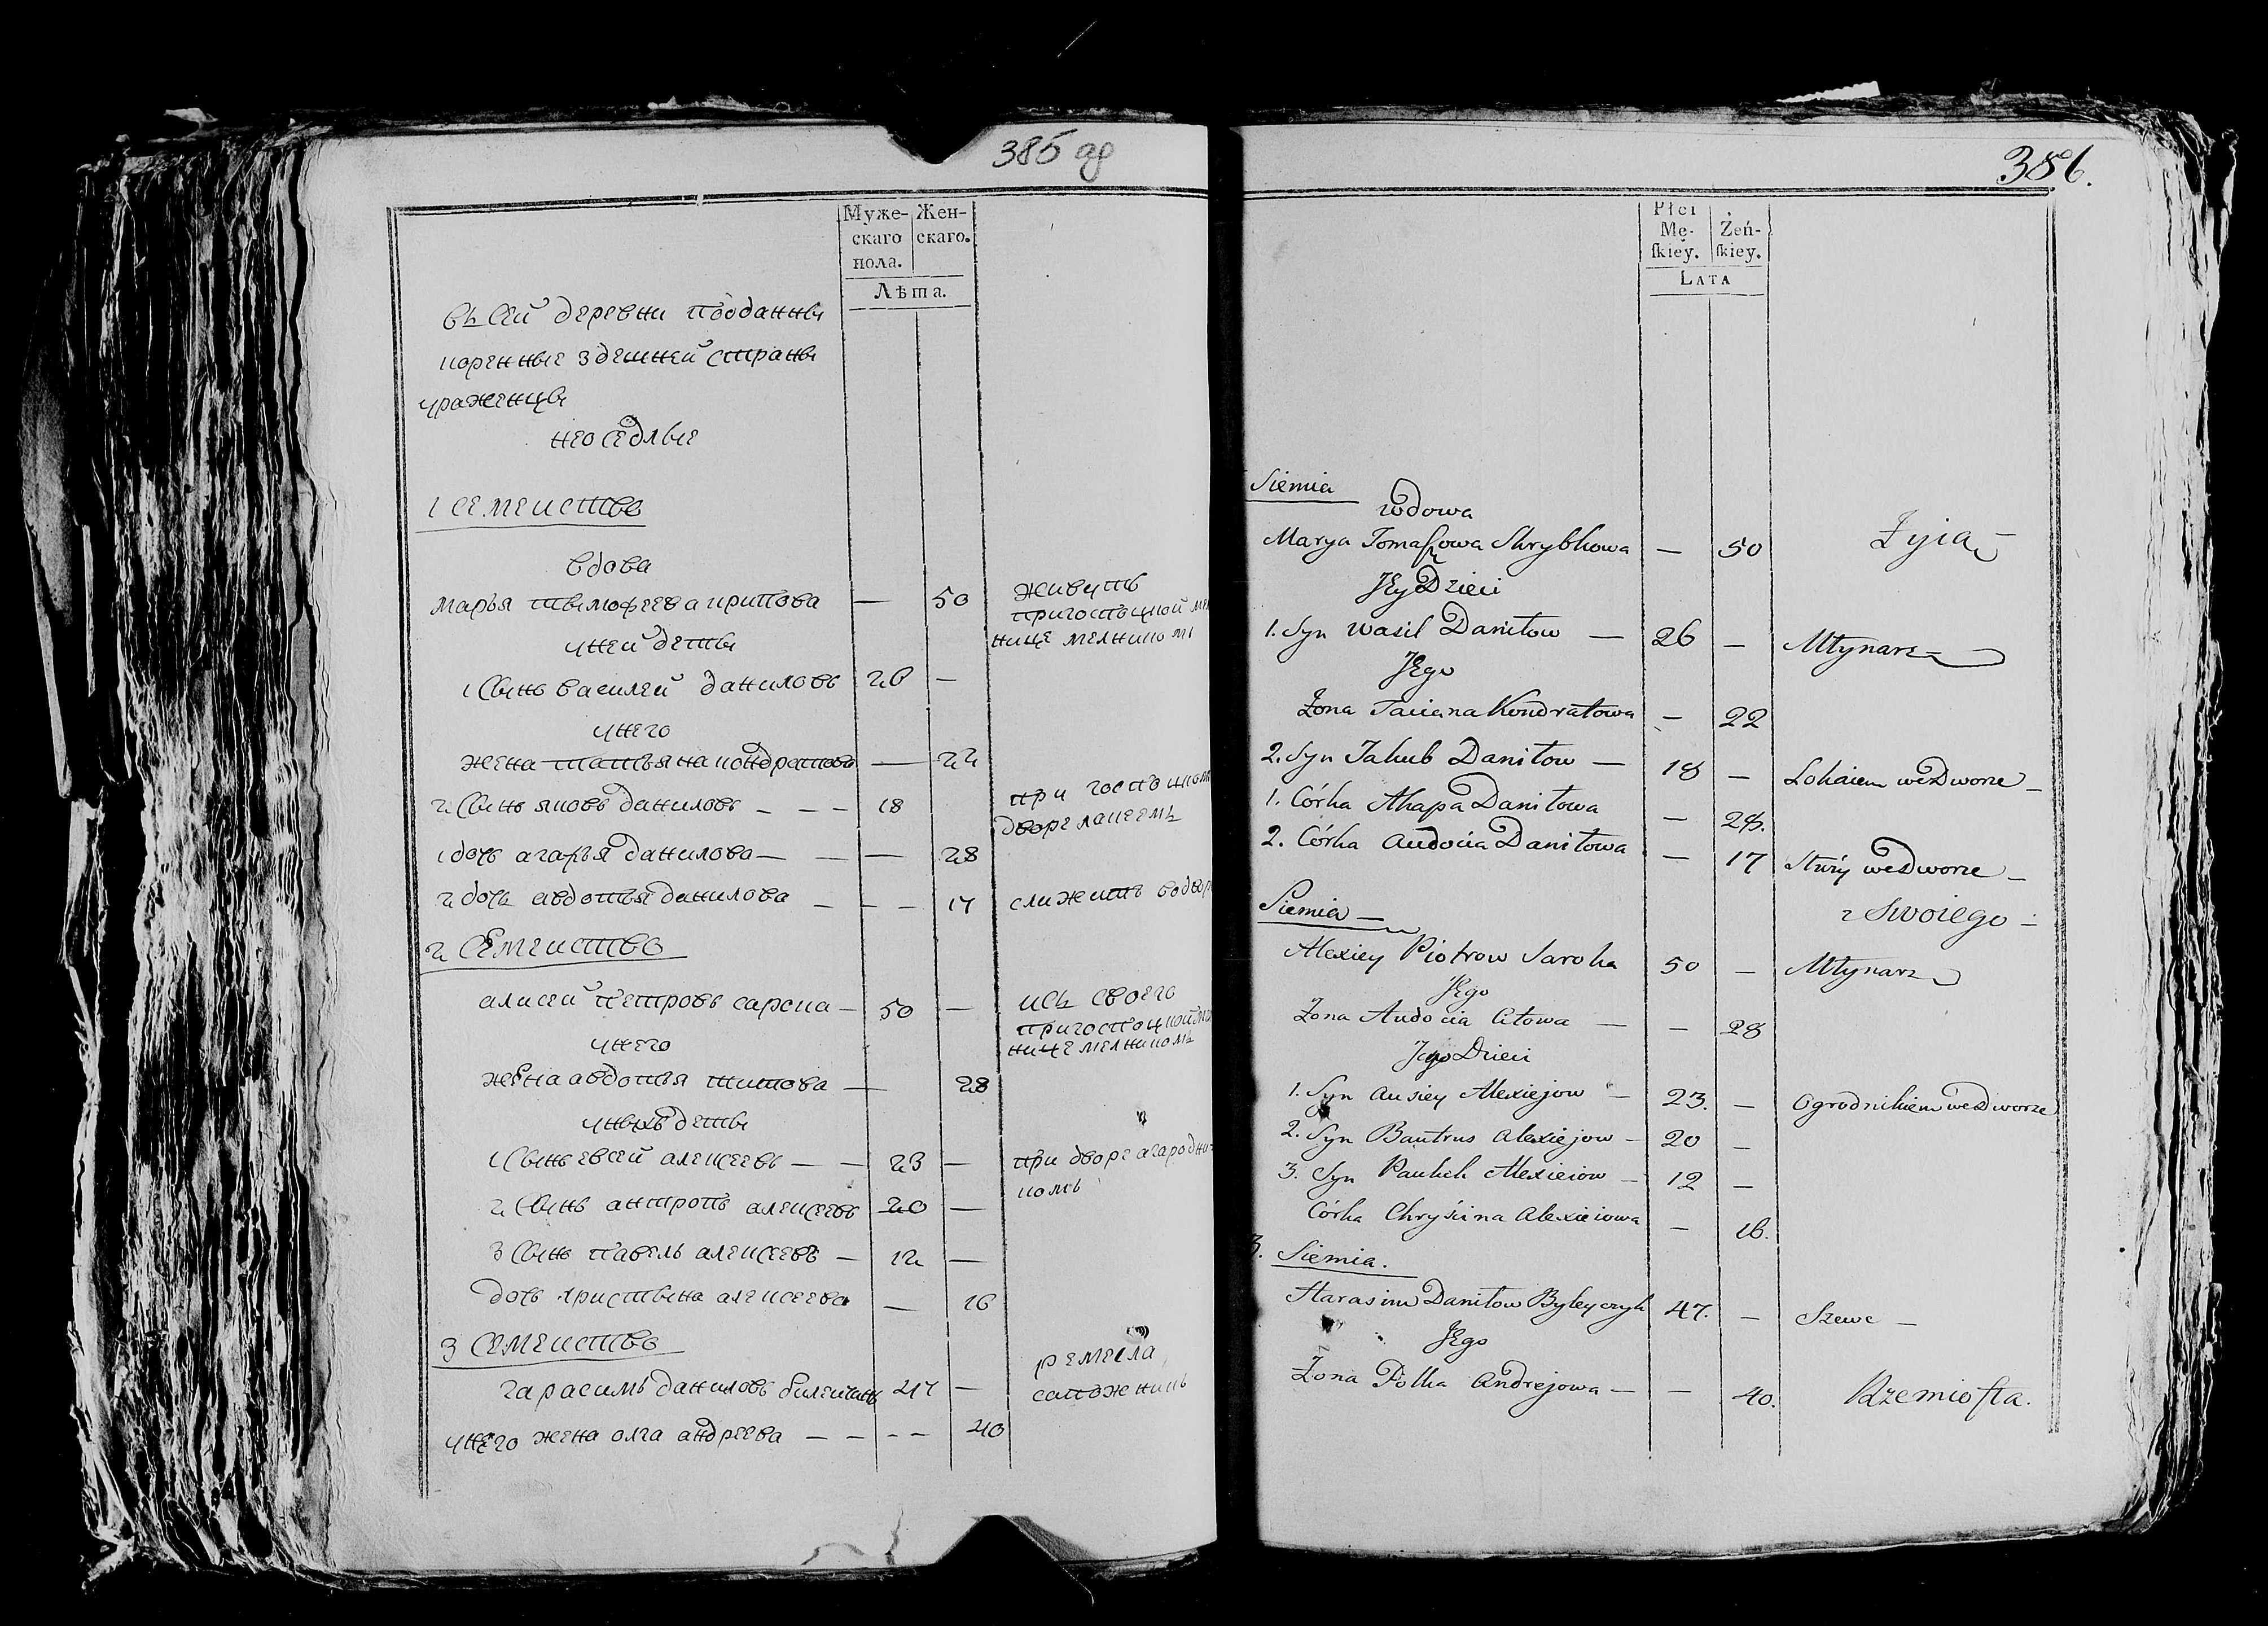 385 об
Муже-
скаго
пола.
Жен-
скаго.
Лѣта.
въ сей деревниподанны
коренные здешней страны
ураженцы
неоседлые
1 семеиство
вдова
марья тымофеева крипова — 50 живутъ
пригоспоцкой мел
нице мелникомъ
уней деты
1 сынъ василей даниловъ 26 —
унего
жена татьяна кондратова — 22
2 сынъ яковъ даниловъ — — — 18
при госпоцкомъ
дворе лакеемъ
1 дочь агапья данилова — — — 28
2 дочь авдотья данилова — — — 17 служитъ водвор
2 семеиство
алисей петровъ сарока — 50 — исъ своего
пригоспоцкой мел
нице мелникомъ
унего
жена авдотья титова — 28
уныхъ деты
1 сынъ евсей алексеевъ — — 23 — при дворе агародни
комъ
2 сынъ антропъ алексеевъ 20 —
3 сынъ павелъ алексеевъ — 12 —
дочь христына алексеева — 16
3 семеиство
ремесла
гарасимъ даниловъ билейчикъ 47 — сапожникъ
унего жена олга андреева — — - - 40
386.
Płci
Mę-
ſkiey.
Żeń-
ſkiey.
Lata
Siemia
wdowa
Marya Tomaszowa Skrybkowa — 50 Żyią
Jey Dzieci
1. Syn Wasil Daniłow — 26 — Młynarz
Jego
Żona Taciana Kondratowa — 22
2. Syn Jakub Daniłow — 18 — Lokaiem we Dworze —
1. Córka Ahapa Daniłowa — 28.
2. Córka Audocia Daniłowa — 17 Służy we Dworze —
Siemia — z Swoiego —
Alexiey Piotrow Saroka 50 — Młynarz
Jego
Żona Audocia Citowa — — 28
Jego Dzieci
1. Syn Ausiey Alexiejow — 23. — Ogrodnikiem we Dworze
2. Syn Bautrus Alexiejow — 20 —
3. Syn Pauluk Alexieiow — 12 —
Córka Chryścina Alexieiowa — 16.
3. Siemia.
Harasim Daniłow Byleyczyk 47. — Szewc —
Jego
Żona Polka Andrejowa — — 40. Rzemiosła.